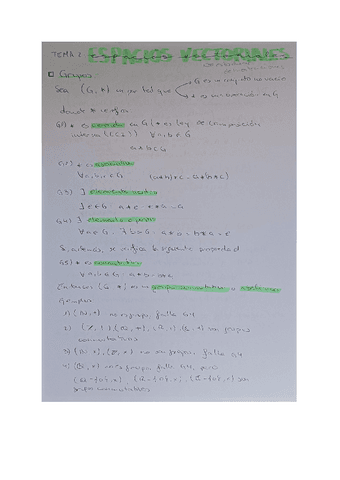 TEMA 2: ESPACIOS VECTORIALES
Grupos
Sea (G, *) un par tal que
G es un conjunto no vacío
* es una operación en G
donde * verifica
G1) * es cerrada en G (* es ley de composición
interna (LCI)) ∀a,b ∈ G
a*b ∈ G
G2) * es asociativa
∀a,b,c ∈ G (a*b)*c = a*(b*c)
G3) ∃ elemento neutro
∃ e ∈ G : a*e = e*a = a
G4) ∃ elemento opuesto
∀a ∈ G ∃ b ∈ G : a*b = b*a = e
Si, además, se verifica la siguiente propiedad
G5) * es conmutativa
∀a,b ∈ G a*b = b*a
Entonces (G, *) es un grupo conmutativo o abeliano
Ejemplos:
1) (N, +) no es grupo, falla G4
2) (Z, +) (Q, +), (R, +), (C, +) son grupos
conmutativos
3) (N, ·), (Z, ·) no son grupos, falla G4
4) (Q, ·) no es grupo falla G4, pero
(Q-{0}, ·), (R-{0}, ·), (C-{0}, ·) son
grupos conmutativos